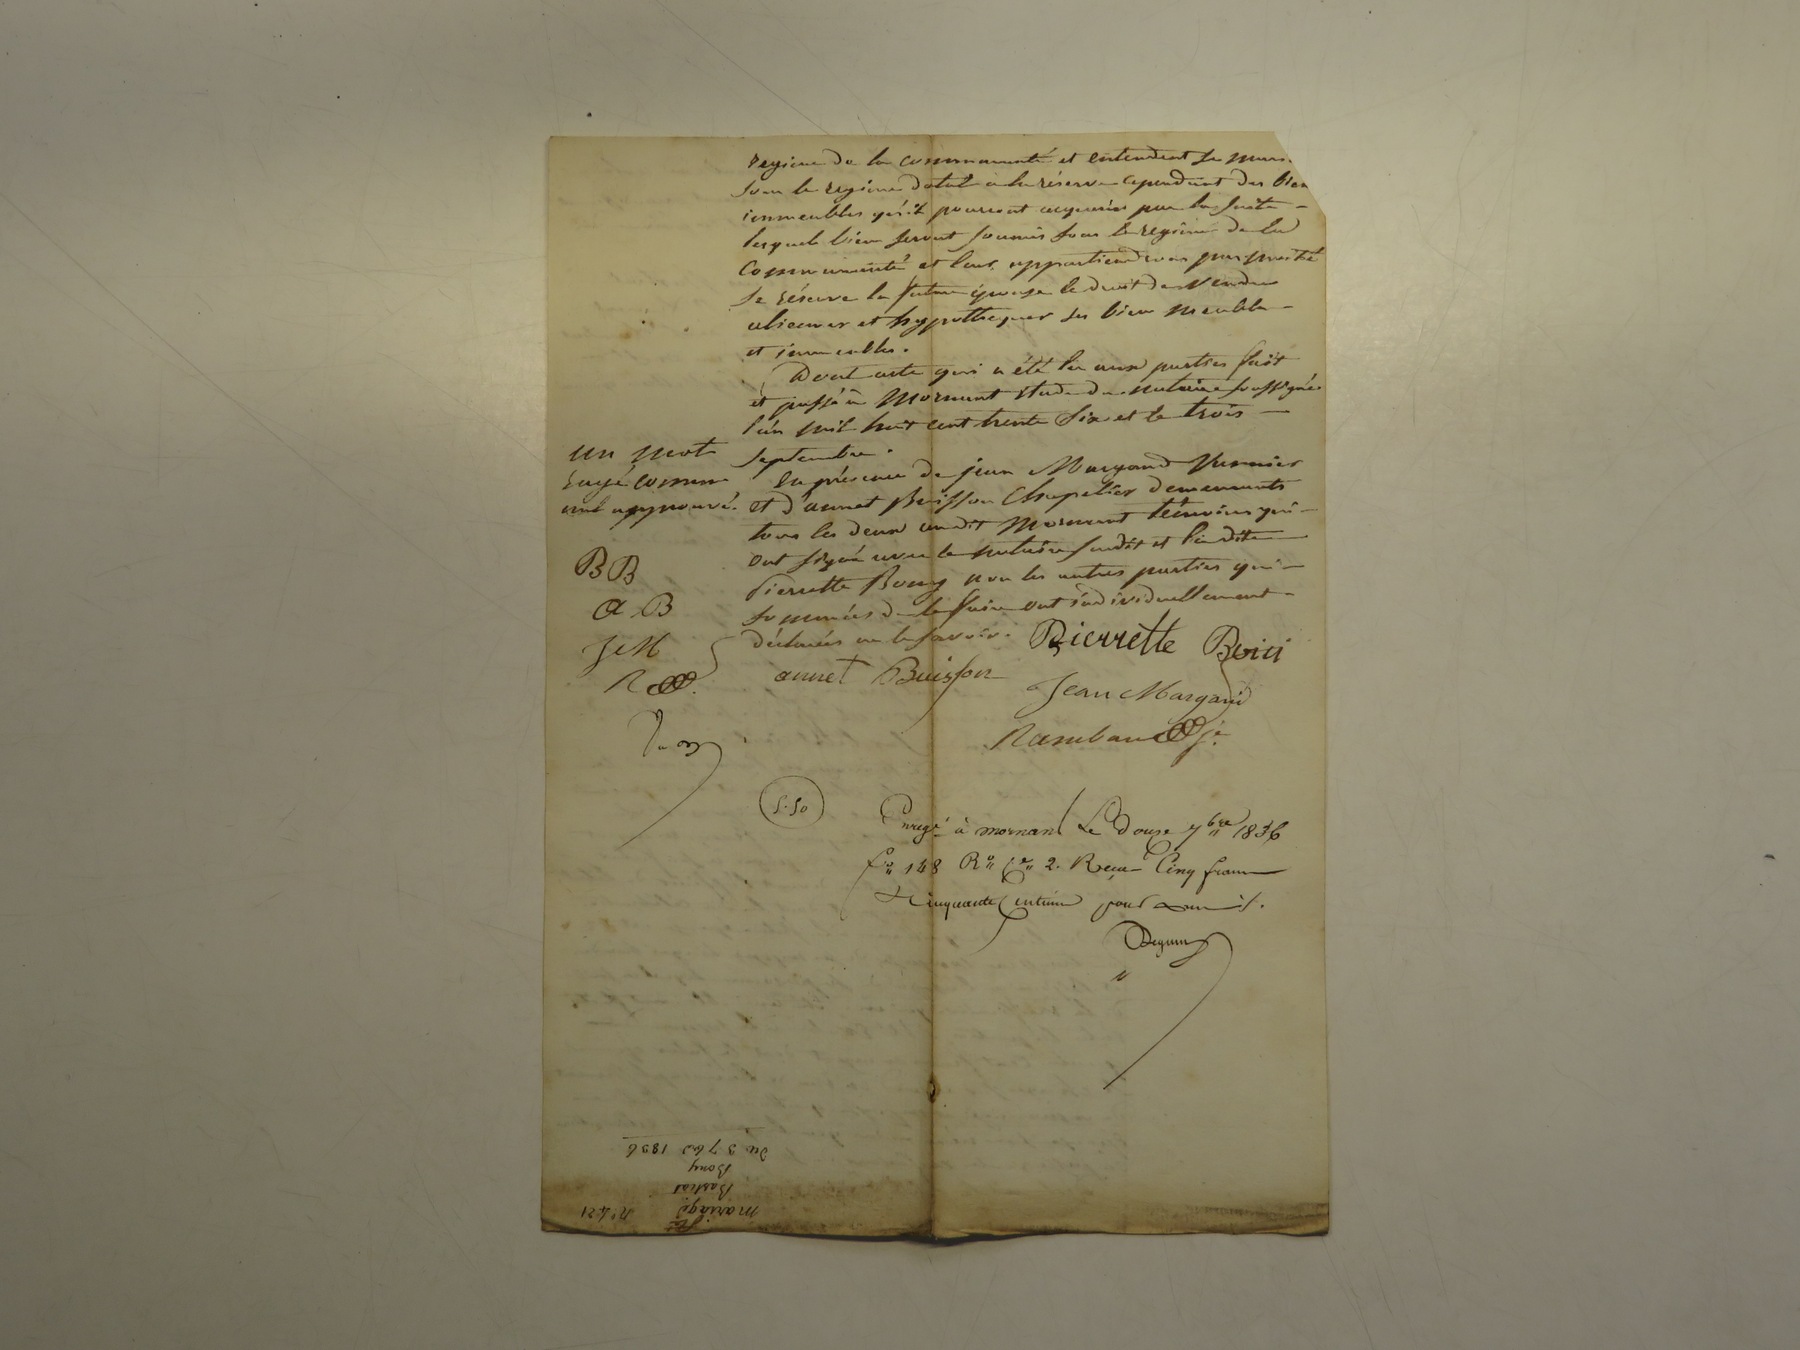 regime de la communauté et entendent se marier
sous le regime dotal à la réserve cependant des bien
immeubles qu'il pourront acquerir par la suite
lesquels bien seront soumis sous le regime de la
communauté et leur appartiendront par moitié
se réserve la future épouse le droit de vendre
aliener et hypothequer ses bien meuble
et immeubles.
Dont acte qui a été lu aux parties fait
et passé à Mornant étude du notaire soussigné
l'an mil huit cent trente six et le trois
septembre.
En présence de jean Margand
et d'annet Buisson Chapelier demeurants
tous les deux audit Mornant témoins qui
ont signé avec le notaire susdit et ladite
Pierrette Bony non les autres parties qui
sommées de le faire ont individuellement
déclarés ne le savoir.
un mot
rayé comme
nul approuvé.
BB
a B
J M
R
Pierrette Boni
annet Buisson
Jean Margand
Rambaud
5.50
Enregé à mornant Le Douze 7bre 1836
fo 148 Ro Ce 2. Reçu Cinq francs
Cinquante Centimes
Du 3 7bre 1836
Bony
Bastiat
mariage
No 421